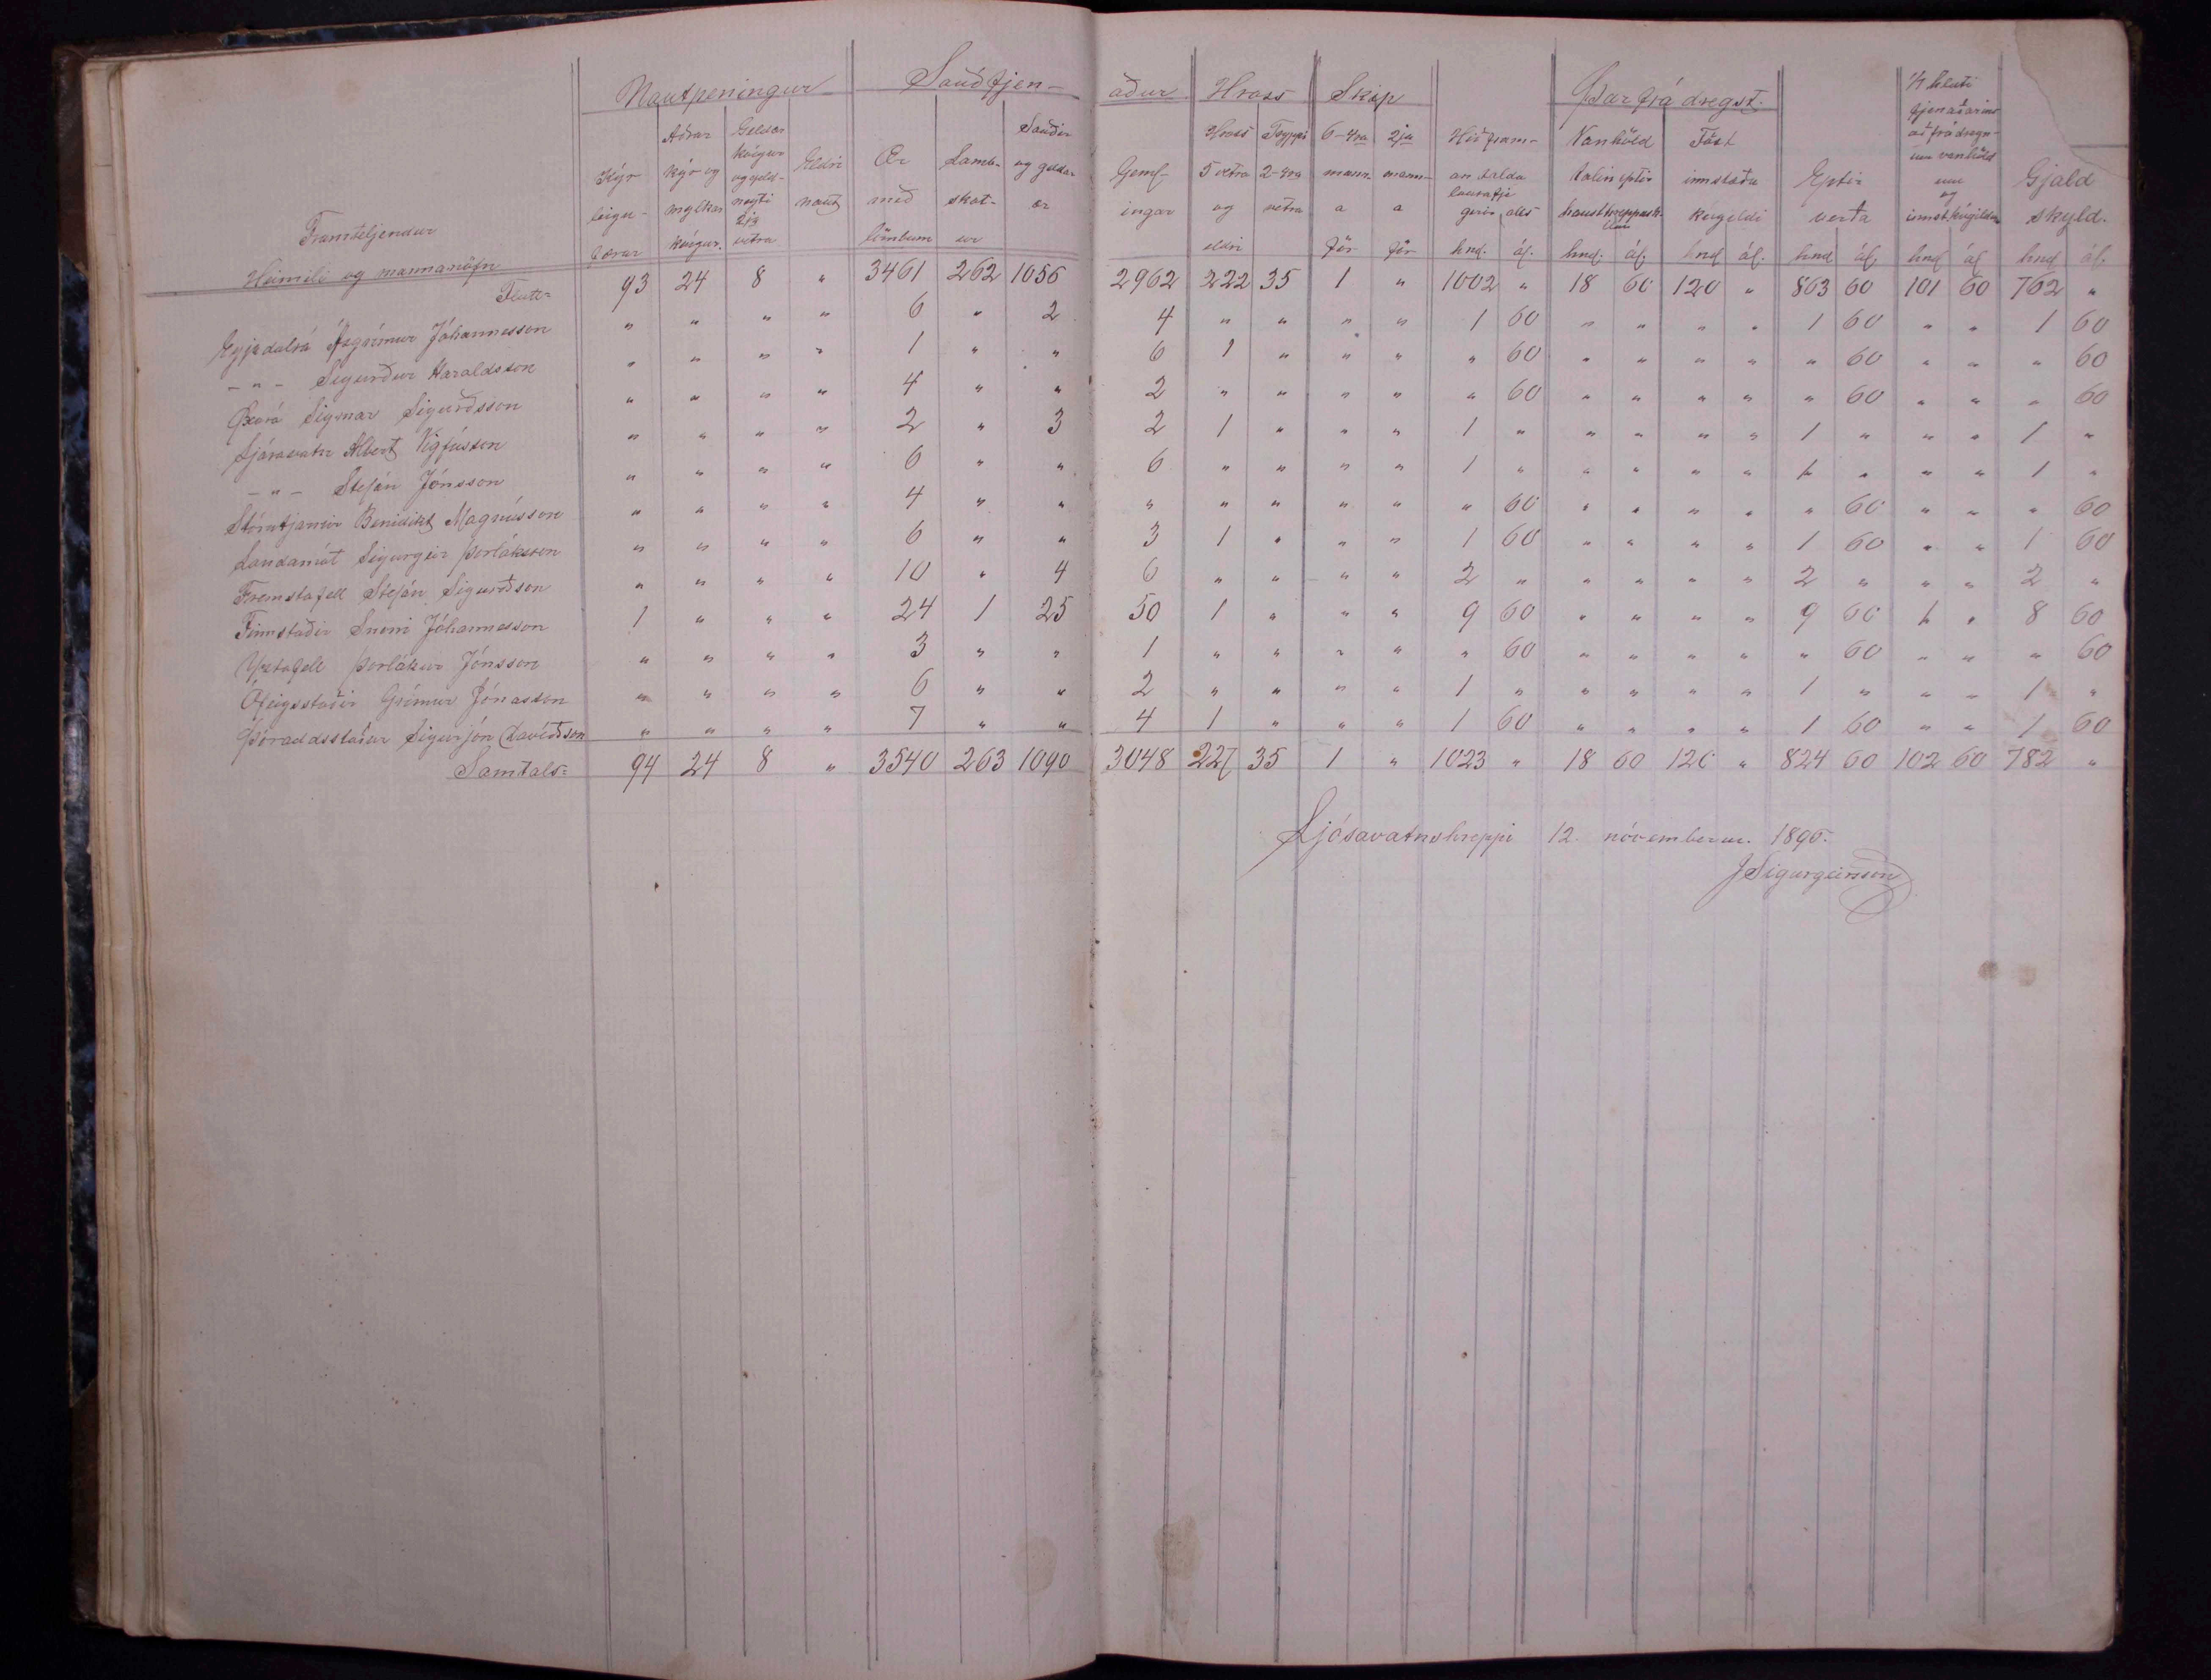 Nautpeningur Sauðfjen- aður Hross Skip Þar frá dregst. 1/7 hluti fjenaðarins að frádregn-um vanhöld um og innst.kúgildum Gjald skyld.
Framteljendur Heimili og mannanöfn Kýr leigu- færar Aðrar kýr og mylkar kúigur. Geldar kúigur og geld-neyti 2ja vetra Eldri naut Ær með lömbum Lamb- skot- ur Sauðir og geldar ær Geml- ingar Hross 5 vetra og eldri Tryppi 2-4ra vetra 6-4ra manna för 2ja manna för Hið fram- antalda lausafje gerir alls hnd. ál. Vanhöld talin eptir hausthreppask. hnd. ál. Föst innstæðu kúgildi hnd ál. Eptir verða hnd ál. hnd ál hnd ál.
Flutt= 93 24 8 " 3461 262 1056 2962 222 35 1 " 1002 " 18 60 120 " 863 60 101 60 762 "
Eyjadalsá Ásgrímur Jóhannesson " " " " 6 " 2 4 " " " " 1 60 " " " " 1 60 " " 1 60
- " - Sigurður Haraldsson " " " " 1 " " 6 1 " " " " 60 " " " " " 60 " " " 60
Öxará Sigmar Sigurðsson " " " " 4 " " 2 " " " " " 60 " " " " " 60 " " " 60
Ljósavatn Albert Vigfússon " " " " 2 " 3 2 1 " " " 1 " " " " " 1 " " " 1 "
- " - Stefán Jónsson " " " " 6 " " 6 " " " " 1 " " " " " 1 " " " 1 "
Stórutjarnir Benidikt Magnússon " " " " 4 " " " " " " " " 60 " " " " " 60 " " " 60
Landamót Sigurgeir Þorláksson " " " " 6 " " 3 1 " " " 1 60 " " " " 1 60 " " 1 60
Fremstafell Stefán Sigurðson " " " " 10 " 4 6 " " " " 2 " " " " " 2 " " " 2 "
Finnstaðir Snorri Jóhannesson 1 " " " 24 1 25 50 1 " " " 9 60 " " " " 9 60 1 " 8 60
Yztafell Þorlákur Jónsson " " " " 3 " " 1 " " " " " 60 " " " " " 60 " " " 60
Ófeigsstaðir Grímur Jónasson " " " " 6 " " 2 " " " " 1 " " " " " 1 " " " 1 "
Þóroddsstaður Sigurjón Davíðsson " " " " 7 " " 4 1 " " " 1 60 " " " " 1 60 " " 1 60
Samtals= 94 24 8 " 3540 263 1090 3048 227 35 1 " 1023 " 18 60 120 " 824 60 102 60 782 "
Ljósavatnshreppi 12. nóvember m. 1895.
J Sigurgeirsson